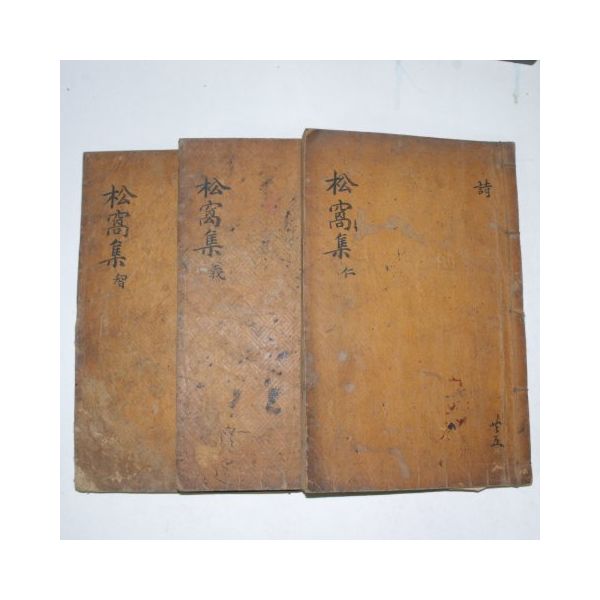 松窩集 仁
詩
松窩集 義
松窩集 智